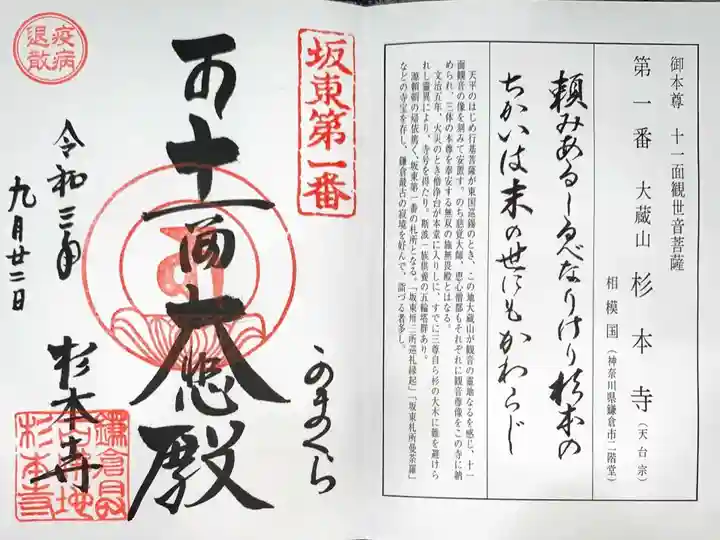 御本尊 十一面観世音菩薩
第一番 大蔵山 杉本寺（天台宗）
相模国（神奈川県鎌倉市二階堂）
頼みあるしるべなりけり杉本の
ちかいは末の世にもかわらじ
天平のはじめ行基菩薩が東国巡錫のとき、この地大蔵山が観音の霊地なるを感じ、十一
面観音の像を刻みて安置す。のち慈覚大師、恵心僧都もそれぞれに観音尊像をこの寺に納
められ、三体の本尊を奉安する無双の施無畏殿とはなる。
文治五年、火災のとき僧浄台が本堂に入りしに、すでに三尊自ら杉の大木に難を避けら
れし霊異により、寺号を得たり。斯波一族供養の五輪塔群あり。
源頼朝の帰依篤く、坂東第一番の札所となる。「坂東卅三所巡礼縁起」「坂東札所曼荼羅」
などの寺宝を存し、鎌倉最古の寂境を好んで、詣づる者多し。
坂東第一番
かまくら
十一面大悲殿
疫病
退散
令和三年
九月廿二日
杉本寺
鎌倉最
古霊地
杉本寺